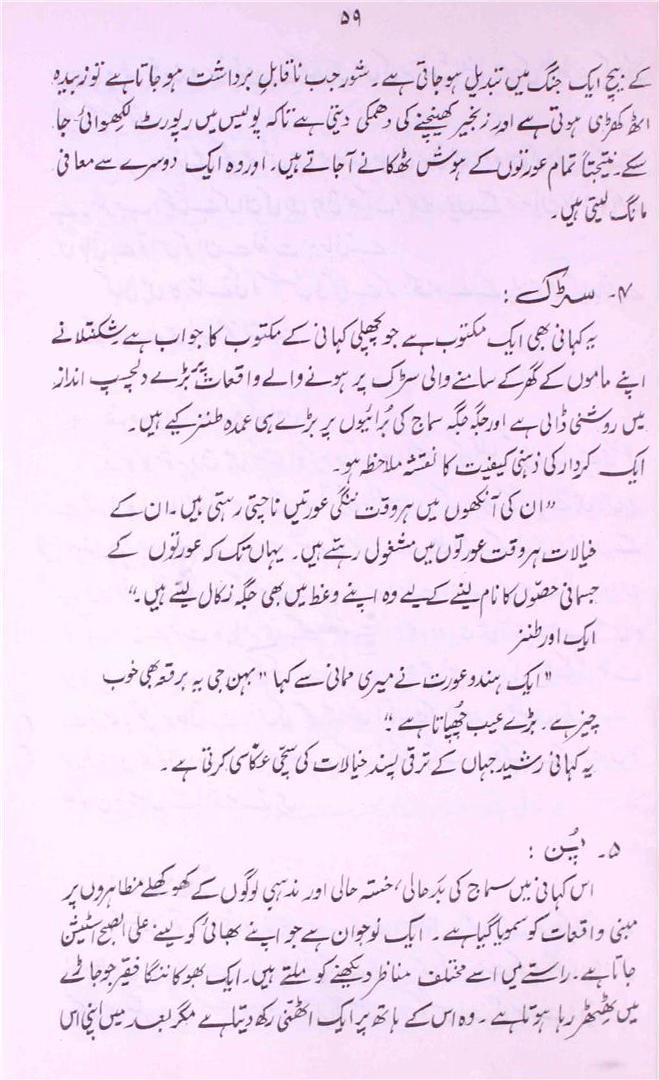 ۵۹
کے بیچ ایک جنگ میں تبدیل ہوجاتی ہے۔ شور جب ناقابلِ برداشت ہو جاتا ہے تو زبیدہ
اٹھ کھڑی ہوتی ہے اور زنجیر کھینچنے کی دھمکی دیتی ہے تاکہ پولیس میں رپورٹ لکھوائی جا
سکے۔ نتیجتاً تمام عورتوں کے ہوش ٹھکانے آجاتے ہیں۔ اور وہ ایک دوسرے سے معافی
مانگ لیتی ہیں۔
۴۔ سڑک :
یہ کہانی بھی ایک مکتوب ہے جو پچھلی کہانی کے مکتوب کا جواب ہے شکنتلا نے
اپنے ماموں کے گھر کے سامنے والی سڑک پر ہونے والے واقعات پر بڑے دلچسپ انداز
میں روشنی ڈالی ہے اور جگہ جگہ سماج کی برُائیوں پر بڑے ہی عمدہ طنز کیے ہیں۔
ایک کردار کی ذہنی کیفیت کا نقشہ ملاحظہ ہو۔
"ان کی آنکھوں میں ہر وقت ننگی عورتیں ناچتی رہتی ہیں۔ ان کے
خیالات ہر وقت عورتوں میں مشغول رہتے ہیں۔ یہاں تک کہ عورتوں کے
جسمانی حصّوں کا نام لینے کے لیے وہ اپنے وعظ میں بھی جگہ نکال لیتے ہیں۔"
ایک اور طنز
"ایک ہندو عورت نے میری ممانی سے کہا "بہن جی یہ برقعہ بھی خوب
چیز ہے۔ بڑے عیب چھُپاتا ہے۔"
یہ کہانی رشید جہاں کے ترقی پسند خیالات کی سچّی عکاسی کرتی ہے۔
۵۔ پُن :
اس کہانی میں سماج کی بدَحالی، خستہ حالی اور مذہبی لوگوں کے کھوکھلے مظاہروں پر
مبنی واقعات کو سمویا گیا ہے۔ ایک نوجوان ہے جو اپنے بھائی کو لینے علی الصبح اسٹیشن
جاتا ہے۔ راستے میں اسے مختلف مناظر دیکھنے کو ملتے ہیں۔ ایک بھوکا ننگا فقیر جو جاڑے
میں ٹھٹھر رہا ہوتا ہے۔ وہ اس کے ہاتھ پر ایک اٹھنّی رکھ دیتا ہے مگر بعد میں اپنی اس